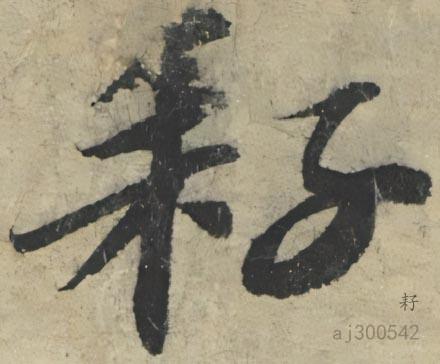 耔
耔
aj300542